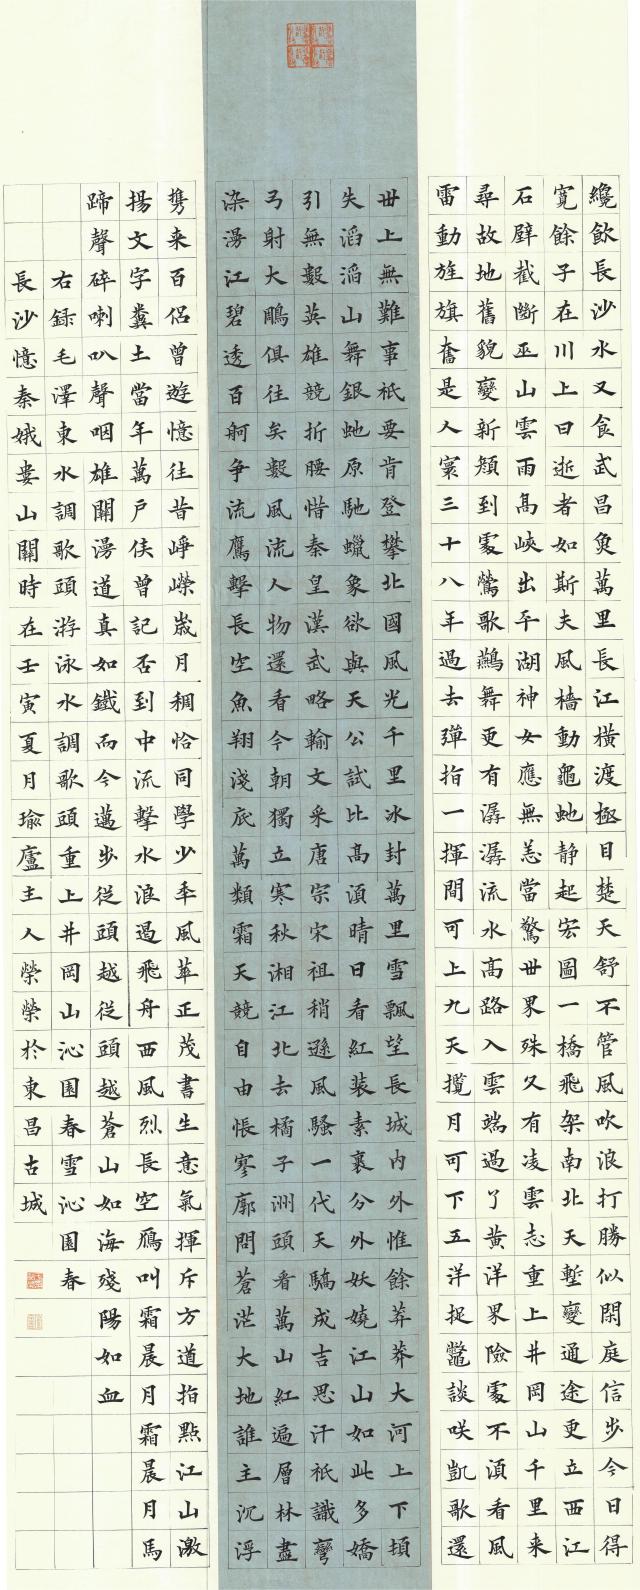 纔飲長沙水又食武昌魚萬里長江橫渡極目楚天舒不管風吹浪打勝似閑庭信步今日得
寬餘子在川上曰逝者如斯夫風檣動龜虵静起宏圖一橋飛架南北天塹變通途更立西江
石壁截斷巫山雲雨髙峽出平湖神女應無恙當驚丗界殊久有凌雲志重上井岡山千里来
尋故地舊貌變新頺到處鶯歌鷰舞更有潺潺流水高路入雲端過了黄洋果險處不湏看風
雷動旌旗奮是人寰三十八年過去彈指一揮間可上九天攬月可下五洋捉鼈談咲凱歌還
丗上無難事祇要肯登攀北國風光千里冰封萬里雪飄望長城内外惟餘莽莽大河上下頓
失滔滔山舞銀虵原馳蠟象欲與天公試比髙湏晴日看紅裝素裹分外妖嬈江山如此多嬌
引無數英雄競折腰惜秦皇漢武略輸文采唐宗宋祖稍遜風騷一代天驕成吉思汗祇識彎
弓射大鵰俱往矣數風流人物還看今朝獨立寒秋湘江北去橘子洲頭看萬山紅遍層林盡
染漫江碧透百舸争流鷹擊長空魚翔淺底萬類霜天競自由悵寥廓問蒼茫大地誰主沉浮
携来百侣曾遊憶往昔崢嶸嵗月稠恰同學少年風華正茂書生意氣揮斥方遒指點江山激
揚文字糞土當年萬户侯曾記否到中流擊水浪遏飛舟西風烈長空鴈叫霜晨月霜晨月馬
蹄聲碎喇叭聲咽雄關漫道真如鐵而今邁步從頭越從頭越蒼山如海殘陽如血
右録毛澤東水調歌頭游泳水調歌頭重上井岡山沁園春雪沁園春
長沙憶秦娥婁山關時在壬寅夏月瑜廬主人榮榮於東昌古城